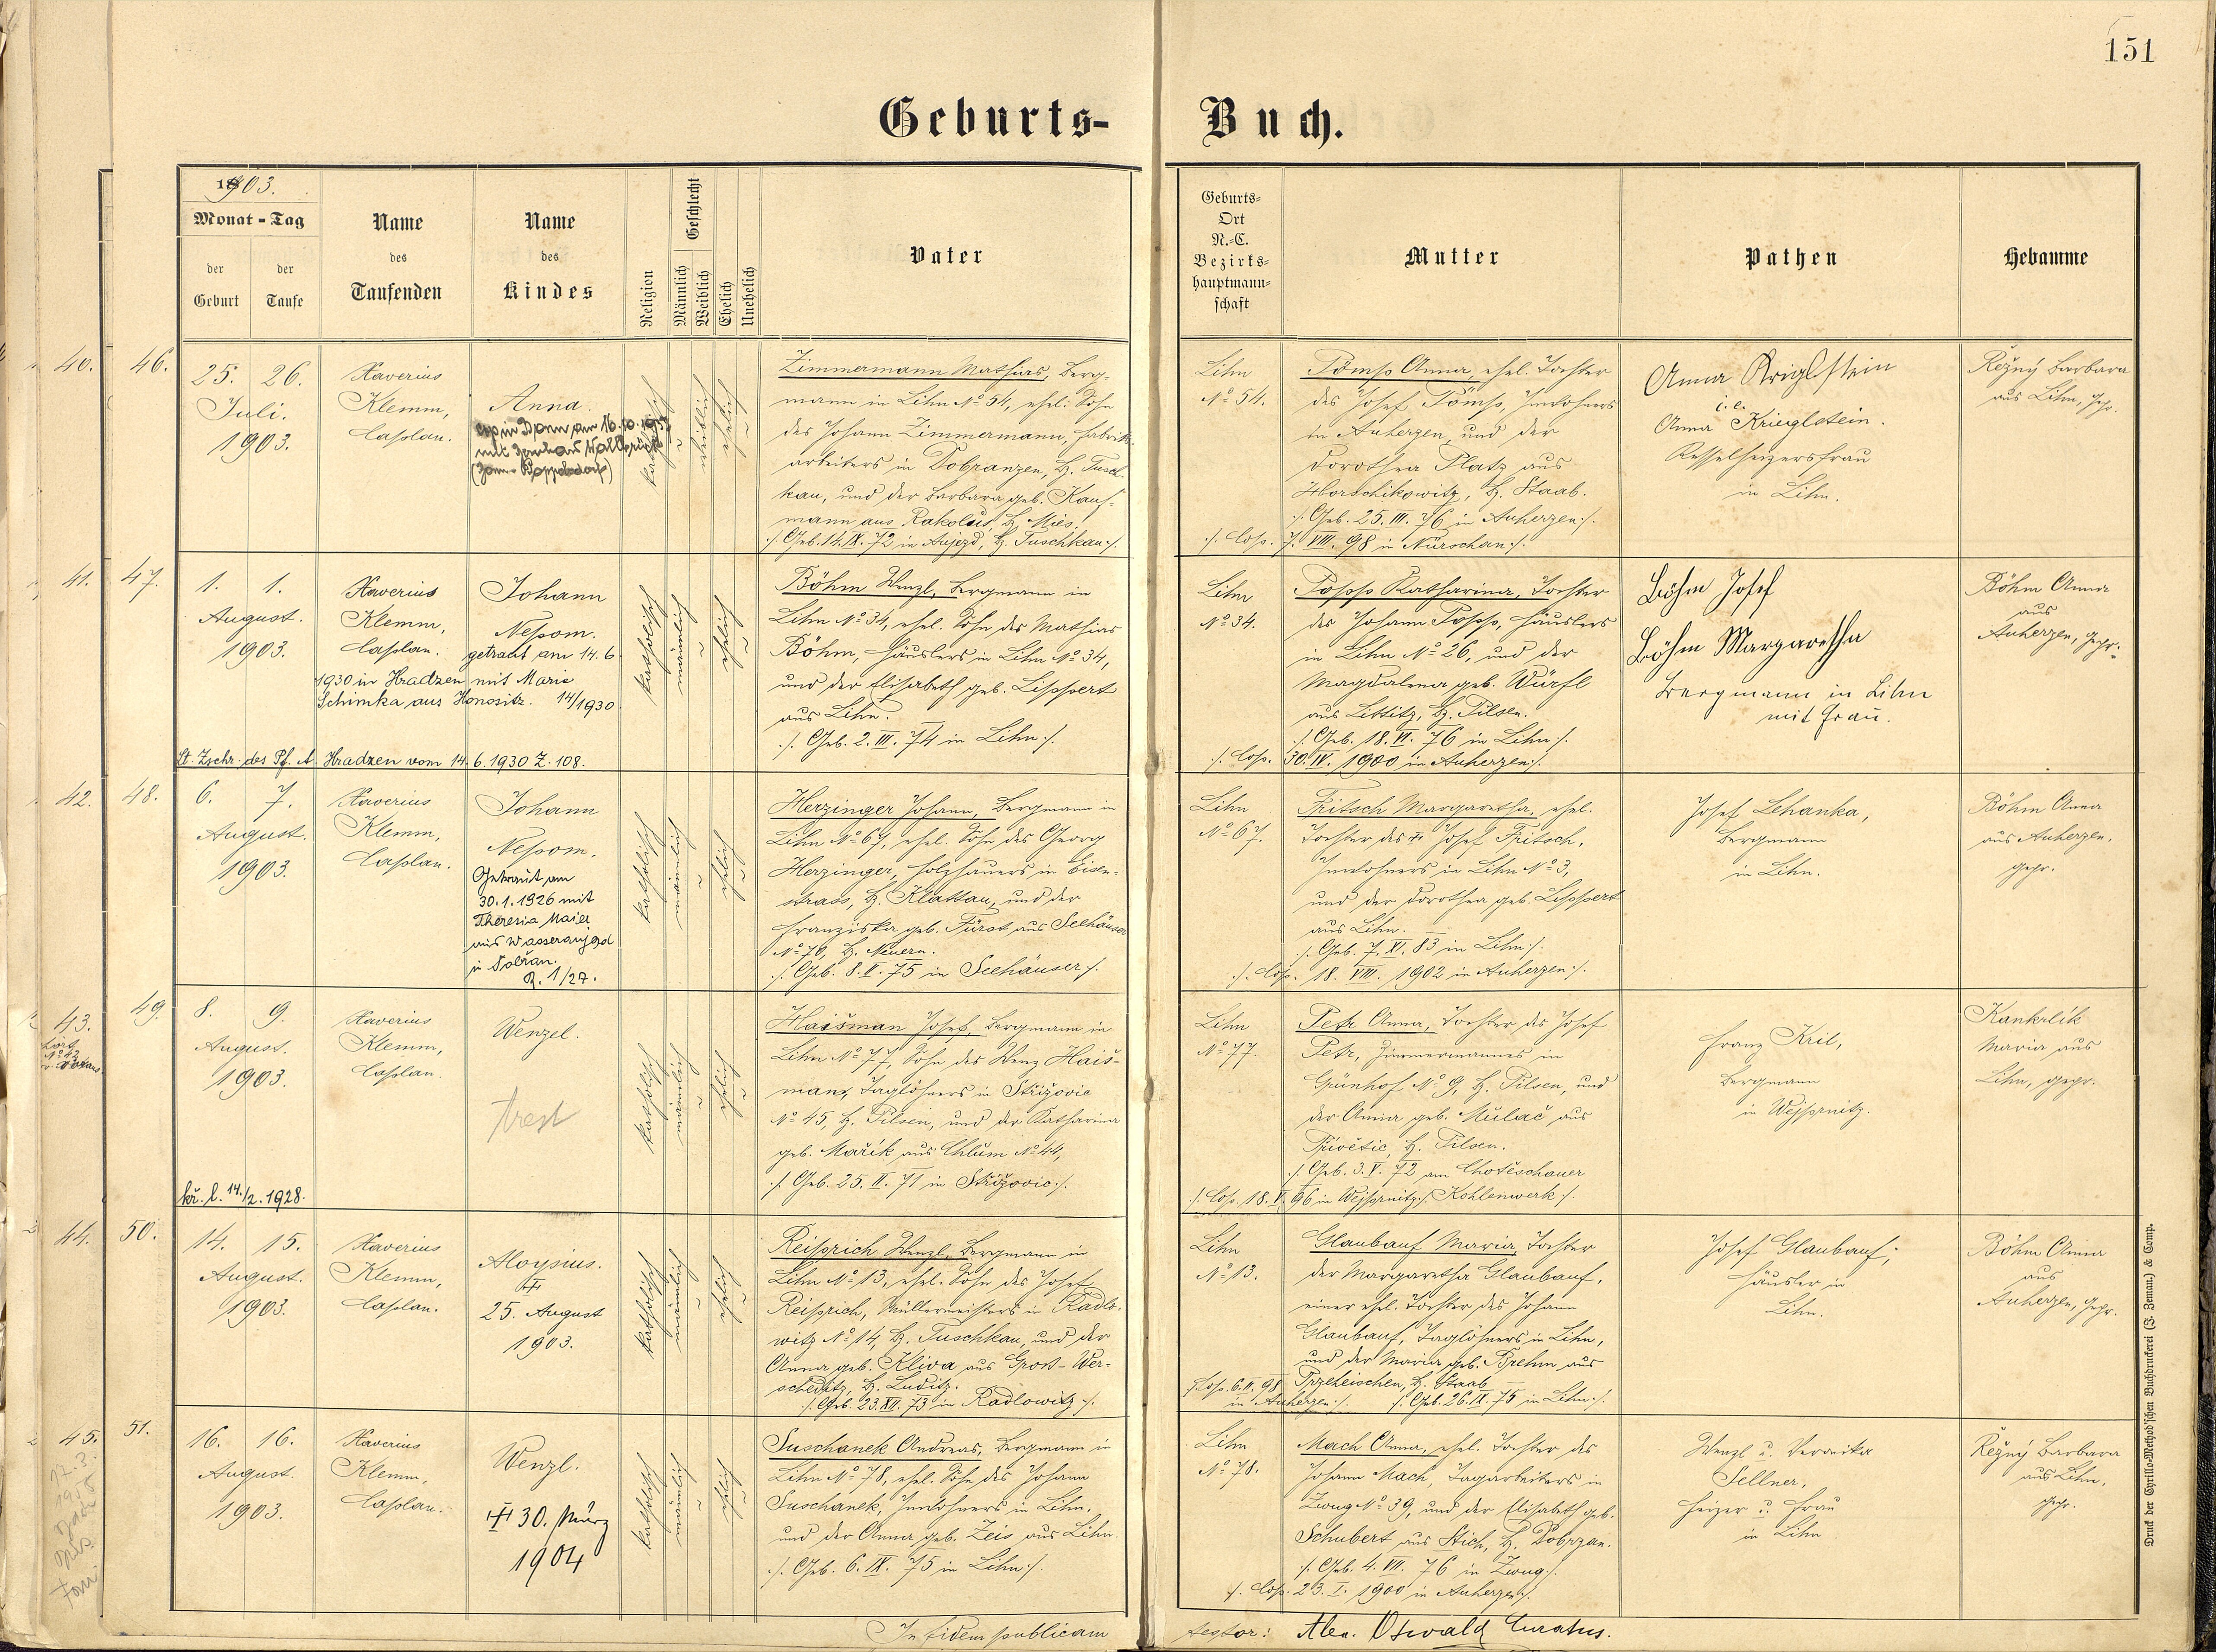 151
Geburts- Buch.
1903.
Monat - Tag
der Geburt
der Taufe
Name des Taufenden
Name des Kindes
Religion
Geschlecht
Männlich
Weiblich
Ehelich
Unehelich
Vater
Geburts-
Ort
N.-C.
Bezirks-
hauptmann-
schaft
Mutter
Pathen
Hebamme
40. 46.
25. 26.
Juli.
1903.
Xaverius
Klemm,
Caplan.
Anna.
katholisch
weiblich
ehelich
Zimmermann Mathias, Berg-
mann in Lihn No 54, ehel. Sohn
des Johann Zimmermann, Fabriks-
arbeiters in Dobranzen, B. Tusch-
kau, und der Barbara geb. Kauf-
mann aus Rakolus, B. Mies.
/. Geb. 14. IX. 72 in Aujezd, B. Tuschkau ./.
Lihn
No 54.
Anna, ehel. Tochter
des Josef Inwohners
in Auherzen, und der
Dorothea Platz aus
Horschikowitz, B. Staab.
./. Geb. 25. III. 76 in Auherzen ./.
./. Cop. 7. VIII. 98 in Nürschan ./.
Anna Kriglstein
i. e.
Anna Krieglstein.
Kesselheizersfrau
in Lihn.
Režný Barbara
aus Lihn, gepr.
41. 47.
1. 1.
August.
1903.
Xaverius
Klemm,
Caplan.
Johann
Nepom.
getraut am 14.6.
1930 in Hradzen mit Marie
Schimka aus Honositz. 14/1930
Lt. Zschr. des Pf. A. Hradzen vom 14.6.1930 Z. 108.
katholisch
männlich
ehelich
Böhm Wenzl, Bergmann in
Lihn No 34, ehel. Sohn des Mathias
Böhm, Häuslers in Lihn No 34,
und der Elisabeth geb. Lippert
aus Lihn.
./. Geb. 2. III. 74 in Lihn ./.
Lihn
No 34.
Katharina, Tochter
des Johann Häuslers
in Lihn No 26, und der
Magdalena geb. Würfl
aus Littitz, B. Pilsen.
./. Geb. 18. VI. 76 in Lihn ./.
./. Cop. 30. IV. 1900 in Auherzen ./.
Böhm Josef
Böhm Margaretha
Bergmann in Lihn
mit Frau.
Böhm Anna
aus
Auherzen, gepr.
42. 48.
6. 7.
August.
1903.
Xaverius
Klemm,
Caplan.
Johann
Nepom.
Getraut am
30.1.1926 mit
Theresia Maier
aus Wasseraujezd
in Dobřan.
Z. 1/27.
katholisch
männlich
ehelich
Herzinger Johann, Bergmann in
Lihn No 67, ehel. Sohn des Georg
Herzinger, Holzhauers in Eisen-
strass, B. Klattau, und der
Franziska geb. Fürst aus Seehäuser
No 70, B. Neuern.
./. Geb. 8. V. 75 in Seehäuser ./.
Lihn
No 67.
Fritsch Margaretha, ehel.
Tochter des Josef Fritsch,
Inwohners in Lihn No 3,
und der Dorothea geb. Lippert
aus Lihn.
./. Geb. 7. XI. 83 in Lihn ./.
./. Cop. 18. VIII. 1902 in Auherzen ./.
Josef Lehanka,
Bergmann
in Lihn.
Böhm Anna
aus Auherzen,
gepr.
43. 49.
8. 9.
August.
1903.
Xaverius
Klemm,
Caplan.
Wenzel.
trest
kř. l. 14./2. 1928.
katholisch
männlich
ehelich
Haišman Josef, Bergmann in
Lihn No 77, Sohn des Wenz Haiš-
man, Taglöhners in Střižovic
No 45, B. Pilsen, und der Katharina
geb. Mařik aus Chlum No 44,
./. Geb. 25. II. 71 in Střižovic ./.
Lihn
No 77.
Petr Anna, Tochter des Josef
Petr, Zimmermannes in
Grünhof No 9, B. Pilsen, und
der Anna geb. Mulač aus
B. Pilsen.
./. Geb. 3. V. 72 am Chotěschauer
./. Cop. 18. V. 96 in Wejprnitz ./. Kohlenwerk ./.
Franz Kril,
Bergmann
in Wejprnitz.
Kankrlik
Maria aus
Lihn, gepr.
44. 50.
14. 15.
August.
1903.
Xaverius
Klemm,
Caplan.
Aloysius.
25. August
1903.
katholisch
männlich
ehelich
Reiprich Wenzl, Bergmann in
Lihn No 13, ehel. Sohn des Josef
Reiprich, Müllermeisters in Radlo-
witz No 14, B. Tuschkau, und der
Anna geb. Kliva aus Gross-Wer-
scheditz, B. Luditz.
./. Geb. 23. XII. 73 in Radlowitz ./.
Lihn
No 13.
Glaubauf Maria, Tochter
der Margaretha Glaubauf,
einer ehel. Tochter des Johann
Glaubauf, Taglöhners in Lihn,
und der Maria geb. Brehm aus
Przeheischen, B. Staab
./. Cop. 6. II. 98 in Auherzen ./. ./. Geb. 26. IX. 75 in Lihn ./.
Josef Glaubauf,
Häusler in
Lihn.
Böhm Anna
aus
Auherzen, gepr.
45. 51.
16. 16.
August.
1903.
Xaverius
Klemm,
Caplan.
Wenzl.
30. März
1904
katholisch
männlich
ehelich
Suschanek Andreas, Bergmann in
Lihn No 78, ehel. Sohn des Johann
Suschanek, Inwohners in Lihn,
und der Anna geb. Zeis aus Lihn.
./. Geb. 6. IX. 75 in Lihn ./.
Lihn
No 78.
Mach Anna, ehel. Tochter des
Johann Mach, Tagarbeiters in
Zwug No 39, und der Elisabeth geb.
Schubert aus Stich, B. Dobrzan.
./. Geb. 4. VII. 76 in Zwug ./.
./. Cop. 23. I. 1900 in Auherzen ./.
Wenzl u. Veronika
Sellner,
Heizer u. Frau
in Lihn
Režný Barbara
aus Lihn,
gepr.
In fidem publicam
testor: Alex. Oswald Curatus.
Druck der Cyrillo-Method'schen Buchdruckerei (J. Zeman) & Comp.